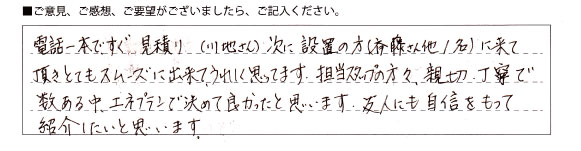 ■ご意見、ご感想、ご要望がございましたら、ご記入ください。
電話一本ですぐ見積り(川地さん)次に設置の方(斉藤さん他1名)に来て
頂きとてもスムーズに出来てうれしく思ってます。担当スタッフの方々、親切、丁寧で
数ある中、エネプランで決めて良かったと思います。友人にも自信をもって
紹介したいと思います。